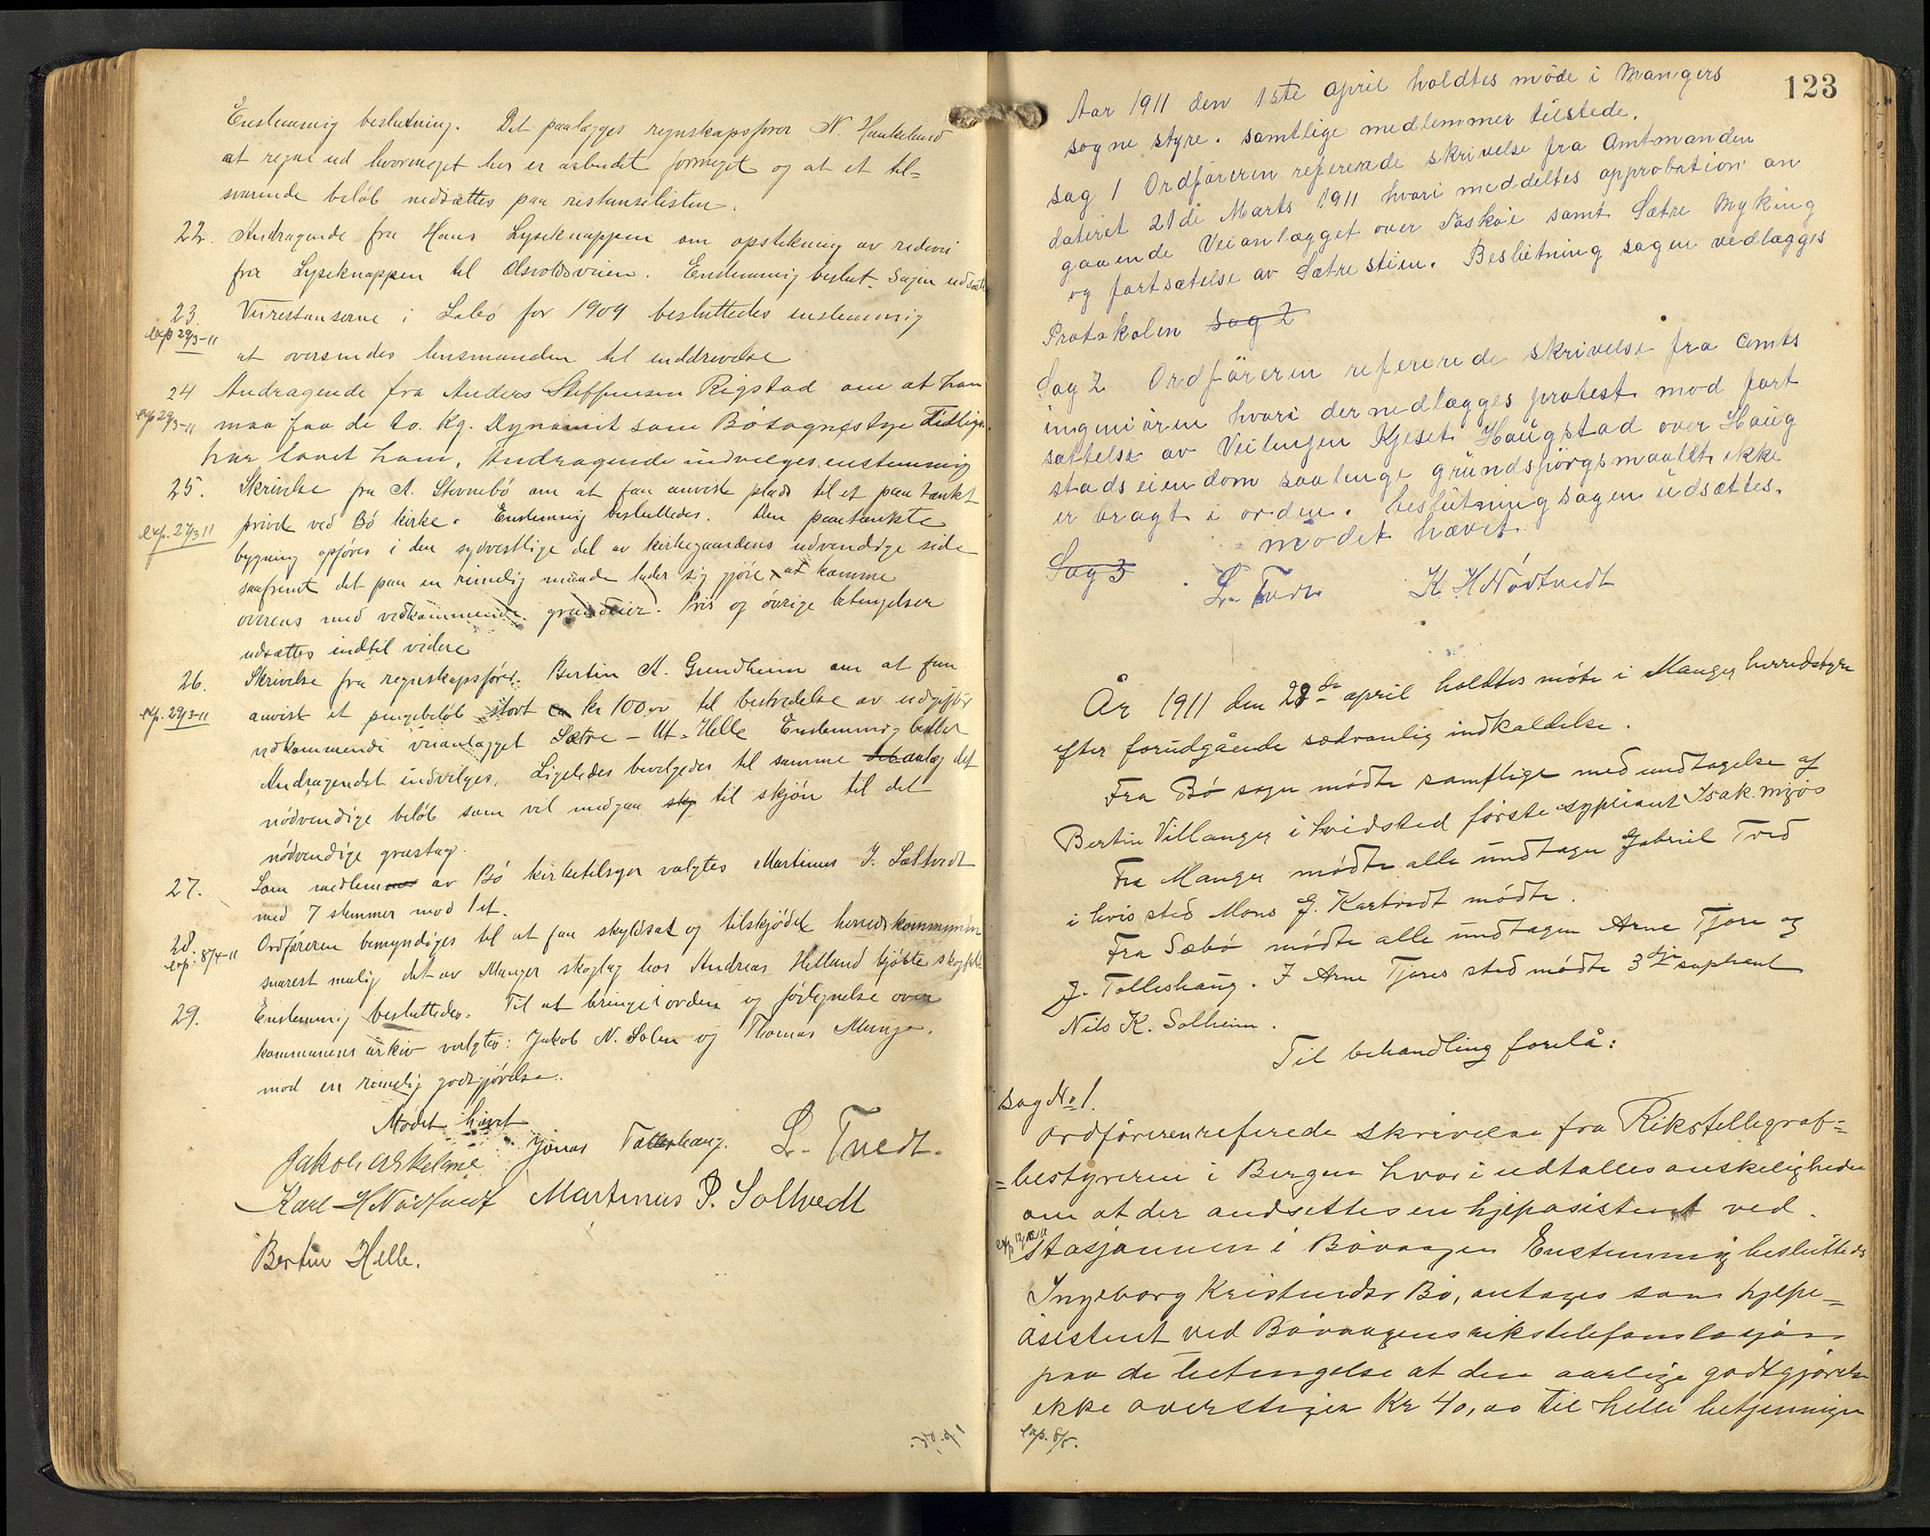 Enstemmig beslutning. Det paalægges regnskapsfører N. Haukeland
at regne ud hvormeget her er arbudt formeget og at et til=
svarende beløb nedsættes paa restanselisten.
22. Andragende fra Hans Lyseknappen om opstikning av redevei
fra Lyseknappen til Olsvoldsveien. Enstemmig beslut. Sagen udsæt
23. Veirestanserne i Sæbø for 1909 besluttedes enstemmig
exp 29/3-11
at oversendes lensmanden til inddrivelse
24 Andragende fra Anders Steffensen Rigstad om at han
exp 29/3-11 maa faa de to. Kg. Dynamit som Bø sognestyre tidligere
har lovet ham. Andragende indvilges enstemmig
25. Skrivelse fra A. Stornebø om at faa anvist plads til et paatænkt
exp. 27/3 11 privet ved Bø kirke. Enstemmig besluttedes. Den paatænkte
bygning opføres i den sydvestlige del av kirkegaardens udvendige side
saafremt det paa en rimelig maade lader sig gjøre at komme
overens med vedkommende grundeier. Pris og øvrige betingelser
udsættes indtil videre
26. Skrivelse fra regnskapsfører Bertin A. Grindheim om at faa
exp. 29/3-11 anvist et pengebeløb stort kr 100,00 til bestridelse av udgifter
vedkommende veianlægget Sætre - Ut-Helle Enstemmig beslut
Andragendet indvilges. Ligeledes bevilgedes til samme anlæg det
nødvendige beløb som vil medgaa skj til skjøn til det
nødvendige græstag.
27. Som medlem av Bø kirketilsyn valgtes Martinus P. Soltvedt
med 7 stemmer mod 1 st.
28. Ordføreren bemyndiges til at faa skyldsat og tilskjødet herredskommunen
exp: 8/4-11
snarest mulig det av Manger skoglag hos Andreas Helland kjøbte skogfelt
29. Enstemmig besluttedes. Til at bringe i orden og fortegnelse over
kommunens arkiv valgtes: Jakob N. Solem og Thomas Manger.
mod en rimelig godtgjørelse.
Mødet hævet
Jakob Askeland Jonas Tolleshaug. L. Tvedt.
Karl H Nødtvedt Martinus P. Soltvedt
Bertin Helle.
123
Aar 1911 den 1ste april holdtes møde i Mangers
sogne styre. samtlige medlemmer tilstede.
Sag 1 Ordføreren refererede skrivelse fra Amtmanden
dateret 21de Marts 1911 hvori meddeltes approbation an
gaaende Veianlægget over Toskøie samt Sætre Myking
og fortsætelse av Sætre stien. Beslutning sagen vedlægges
Protokolen sag 2
Sag 2 Ordføreren refererede skrivelse fra amts
ingeniøren hvori der nedlægges protest mod fort
sættelse av Veilinjen Kjeset Haugstad over Haug
stads eiendom saalenge grundspørgsmaalet ikke
er bragt i orden. beslutning sagen udsættes.
mødet hævet.
Sag 3 L. Tvedt K H Nødtvedt
År 1911 den 28de april holdtes møte i Manger herredstyre
efter forudgående sædvanlig indkaldelse.
Fra Bø sogn mødte samtlige med undtagelse af
Bertin Villanger i hvis sted første supleant Isak. Mjøs
Fra Manger mødte alle undtagen Gabriel Tved
i hvis sted Mons J. Kartvedt mødte.
Fra Sæbø mødte alle undtagen Arne Tjore og
J. Tolleshaug. I Arne Tjores sted mødte 3dje supleant
Nils K. Solheim.
Til behandling forelå:
Sag No 1.
Ordføreren referede skrivelse fra Rikstellegraf=
=bestyreren i Bergen hvori udtalles ønskeligheden
om at der andsettes en hjepasistent ved
stasjonnen i Bøvaagen Enstemmig besluttedes
Ingeborg Kristendtr Bø, antages som hjelpe=
asistent ved Bøvaagens rikstelefonstasjon
paa de betingelse at den aarlige godtgjørelse
ikke overstiger Kr 40,00 til helle betjenningen
exp. 8/5.